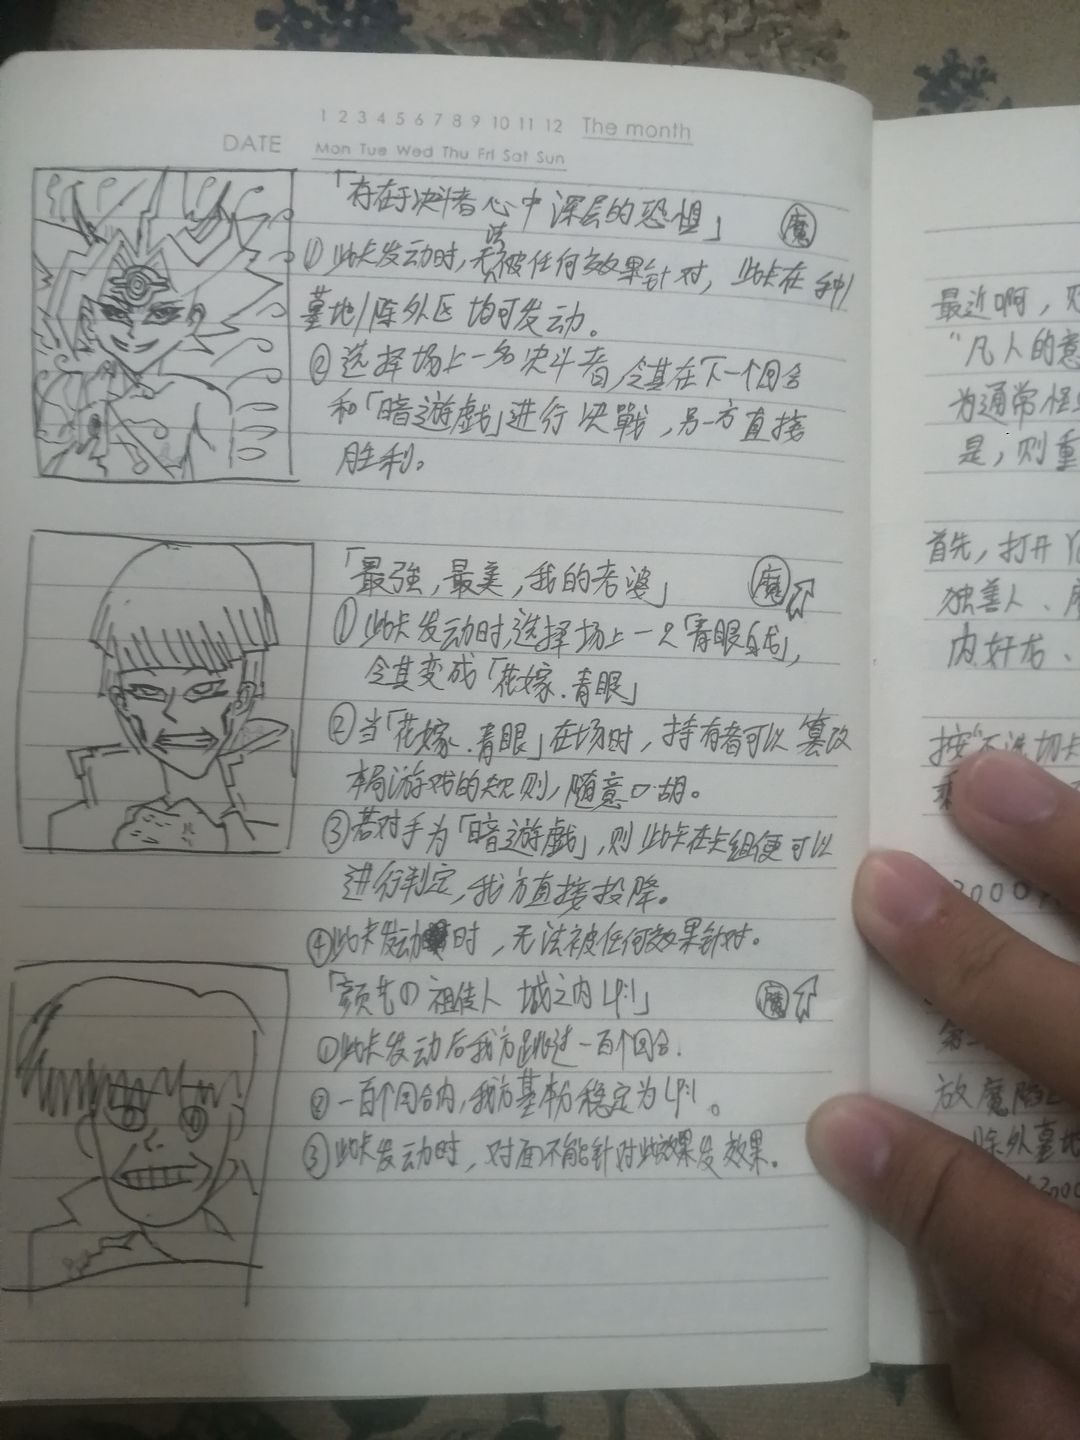 1 2 3 4 5 6 7 8 9 10 11 12 The month
DATE Mon Tue Wed Thu Fri Sat Sun
「存在于决斗者心中深层的恐惧」 魔
①此卡发动时,无法被任何效果针对,此卡在手牌/
墓地/除外区均可发动。
②选择场上一名决斗者,令其在下一个回合
和「暗遊戯」进行决戰,另一方直接
胜利。
「最強,最美,我的老婆」 魔
①此卡发动时选择场上一只「青眼白龙」,
令其变成「花嫁.青眼」
②当「花嫁.青眼」在场时,持有者可以篡改
本局游戏的规则,随意口胡。
③若对手为「暗遊戯」,则此卡在卡组便可以
进行判定,我方直接投降。
④此卡发动时,无法被任何效果针对。
「颜艺の祖传人 城之内
①此卡发动后我方跳过一百个回合.
②一百个回合内,我方基本分稳定为
③此卡发动时,对面不能针对此效果发效果。
最近啊,
“凡人的意
为通常怪
是,则重
首先,打开
独善人、
内奸右、
按“不洗切卡
000
放魔陷
除外墓地
3000